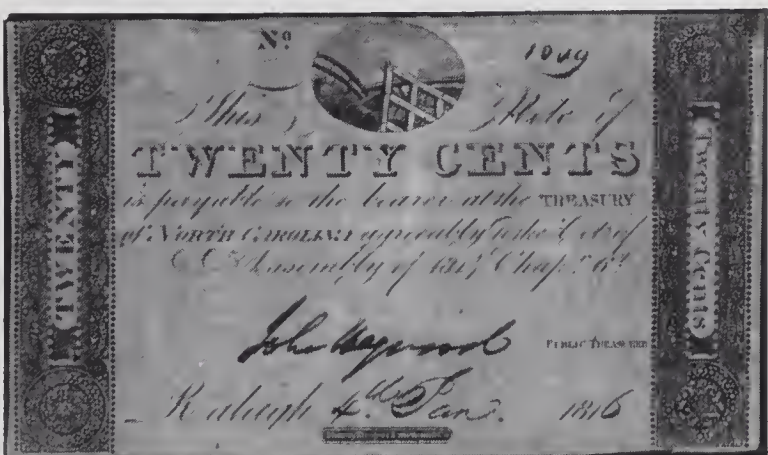 Nº 1049
This Note of
TWENTY CENTS
is payable to the bearer at the TREASURY
of NORTH CAROLINA agreeably to the Act of
Assembly of Chap.
John Haywood PUBLIC TREASURER
Raleigh 4th Jan. 1816
TWENTY
TWENTY CENTS